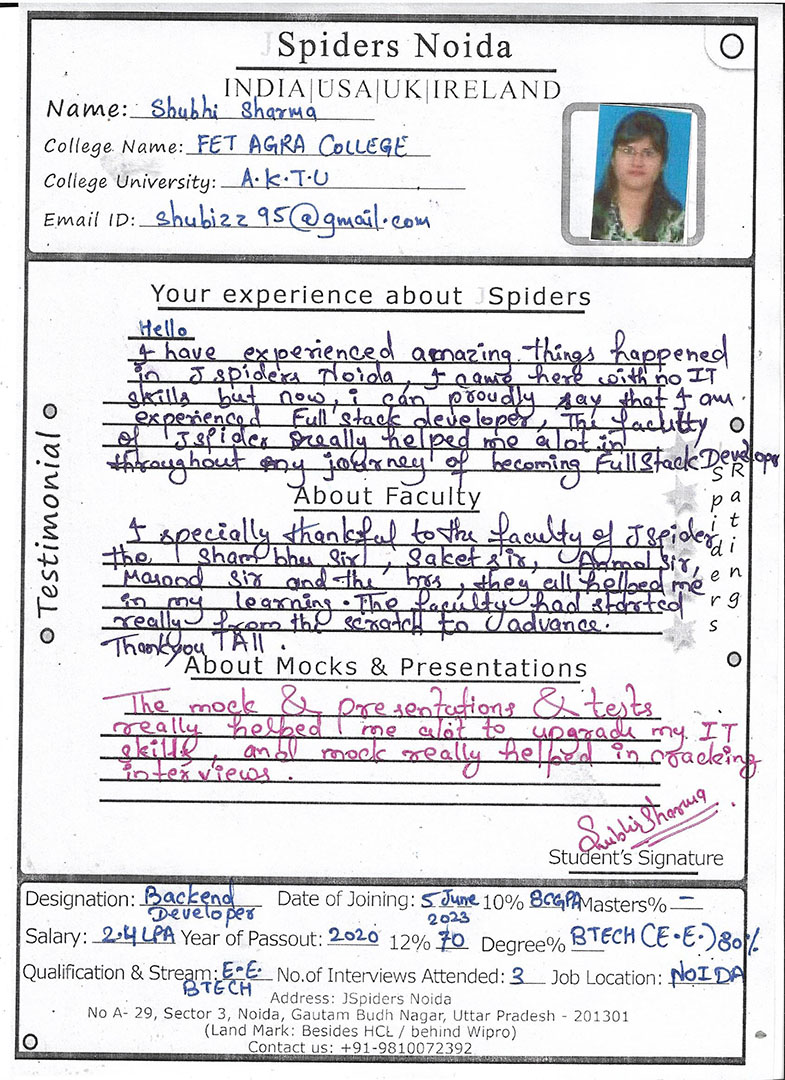 JSpiders Noida
INDIA|USA|UK|IRELAND
Name: Shubhi Sharma
College Name: FET AGRA COLLEGE
College University: A.K.T.U
Email ID: shubizz95@gmail.com
Your experience about JSpiders
Hello
I have experienced amazing things happened
in Jspiders Noida, I came here with no IT
skills but now, i can proudly say that I am
experienced Full stack developer, The facutty
of Jspider really helped me alot in
throughout my journey of becoming Full Stack Developer
About Faculty
I specially thankful to the faculty of Jspider
the Shambhu Sir, Saket sir, Anmol sir,
Masood Sir and the hrs, they all helped me
in my learning. The faculty had started
really from the scratch to advance.
Thankyou All.
About Mocks & Presentations
The mock & presentations & tests
really helped me alot to upgrade my IT
skills, and mock really helped in cracking
interviews.
Testimonial
Spiders
Ratings
Shubhi Sharma
Student's Signature
Designation: Backend Developer Date of Joining: 5 June 2023 10% 8CGPA Masters% -
Salary: 2.4 LPA Year of Passout: 2020 12% 70 Degree% BTECH (E.E.) 80%
Qualification & Stream: E.E. BTECH No.of Interviews Attended: 3 Job Location: NOIDA
Address: JSpiders Noida
No A- 29, Sector 3, Noida, Gautam Budh Nagar, Uttar Pradesh - 201301
(Land Mark: Besides HCL / behind Wipro)
Contact us: +91-9810072392